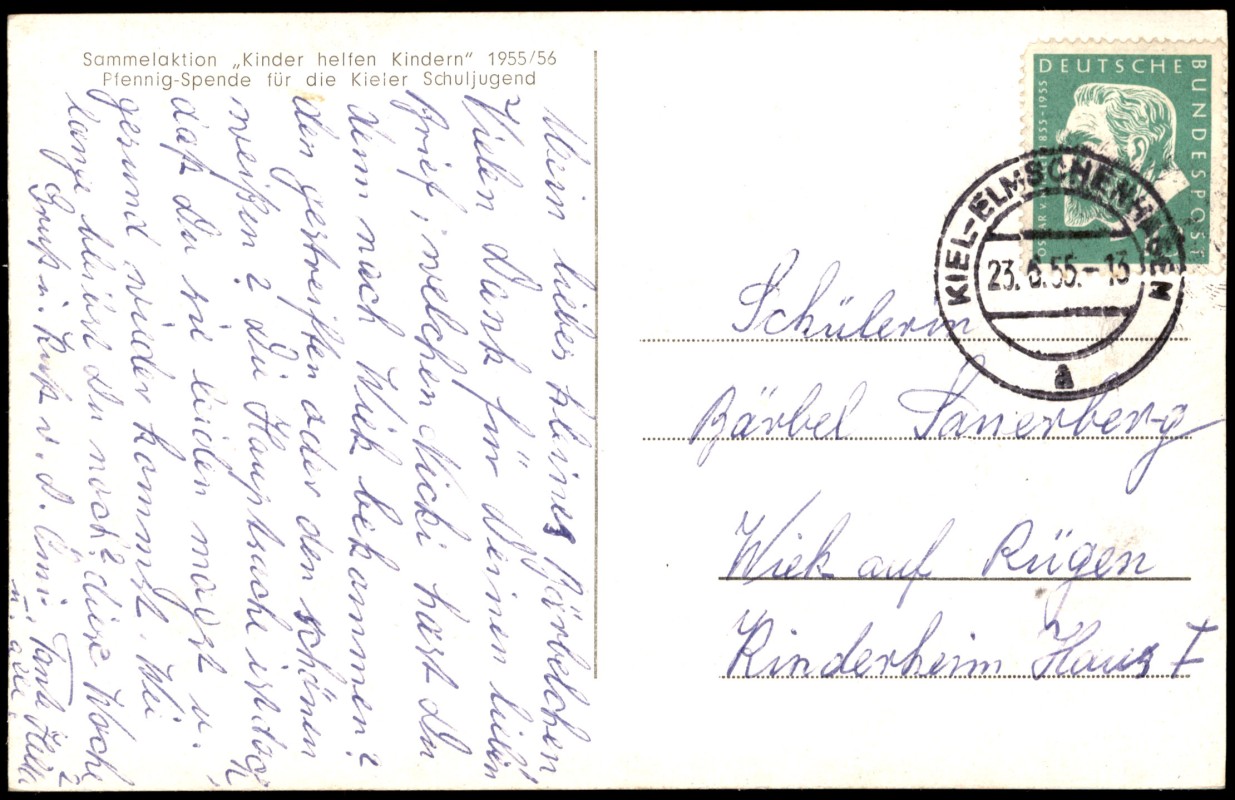 Sammelaktion „Kinder helfen Kindern“ 1955/56
Pfennig-Spende für die Kieler Schuljugend
Mein liebes kleines Bärbelchen
Vielen Dank für Deinen lieben
Brief, welchen Nicki hast du
denn nach Wiek bekommen?
den gestreiften oder den schönen
weißen? Die Hauptsache ist doch
daß Du sie leiden magst u.
gesund wieder kommst. Wie
lange bleibst du noch? diese Woche
Gruß u. Kuß v. d. Omi. Tante
u. alle
DEUTSCHE BUNDESPOST
1855-1955
KIEL-ELMSCHENHAGEN
23.6.55.-13
a
Schülerin
Bärbel Sauerberg
Wiek auf Rügen
Kinderheim Haus I